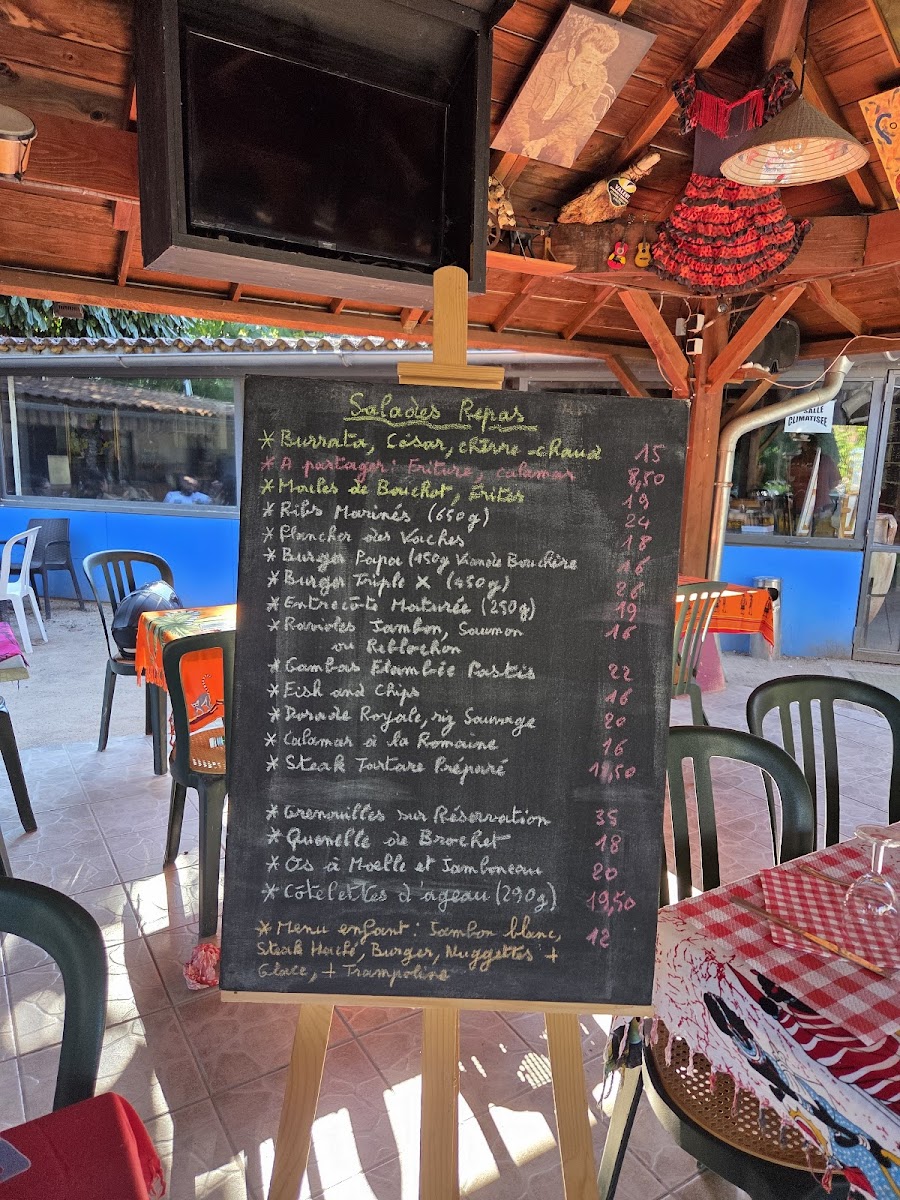 Salades Repas
* Burrata, César, chèvre-chaud 15
* A partager: Friture, calamar 8,50
* Moules de Bouchot, Frites 19
* Ribs Marinés (650g) 24
* Plancher des Vaches 18
* Burger Papa (150g Viande Bouchère 16
* Burger Triple X (450g) 26
* Entrecôte Maturée (250g) 19
* Ravioles Jambon, Saumon 16
ou Reblochon
* Gambas Flambée Pastis 22
* Fish and Chips 16
* Dorade Royale, riz Sauvage 20
* Calamar à la Romaine 16
* Steak Tartare Préparé 17,50
* Grenouilles sur Réservation 35
* Quenelle de Brochet 18
* Os à Moelle et Jamboneau 20
* Côtelettes d'ageau (290g) 19,50
* Menu enfant: Jambon blanc, 12
Steak Haché, Burger, Nuggettes +
Glace, + Trampoline
SALLE
CLIMATISEE